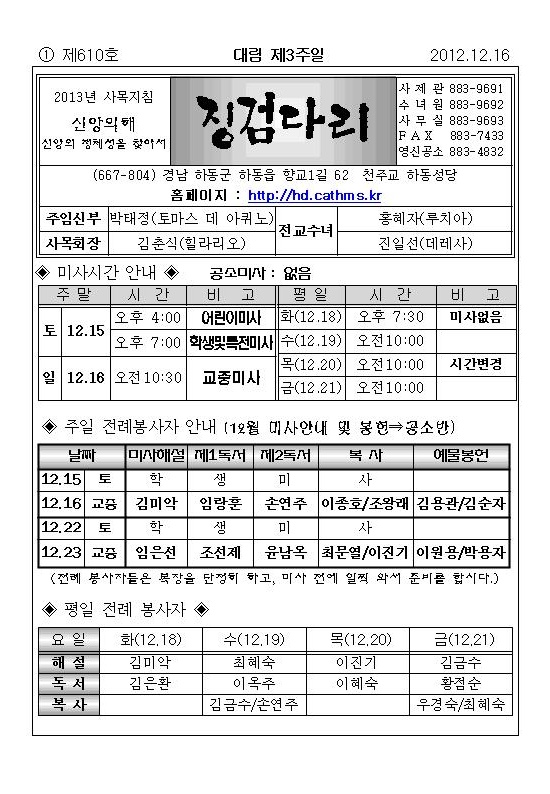 ① 제610호 대림 제3주일 2012.12.16
2013년 사목지침
신앙의해
신앙의 정체성을 찾아서
징검다리
사 제 관 883-9691
수 녀 원 883-9692
사 무 실 883-9693
F A X 883-7433
영신공소 883-4832
(667-804) 경남 하동군 하동읍 향교1길 62 천주교 하동성당
홈페이지 : http://hd.cathms.kr
주임신부 박태정(토마스 데 아퀴노) 전교수녀 홍혜자(루치아)
사목회장 김춘식(힐라리오) 진일선(데레사)
◈ 미사시간 안내 ◈ 공소미사 : 없음
주 말 시 간 비 고 평 일 시 간 비 고
토 12.15 오후 4:00 어린이미사 화(12.18) 오후 7:30 미사없음
오후 7:00 학생및특전미사 수(12.19) 오전10:00
일 12.16 오전10:30 교중미사 목(12.20) 오전10:00 시간변경
금(12.21) 오전10:00
◈ 주일 전례봉사자 안내 (12월 미사안내 및 봉헌⇒공소반)
날짜 미사해설 제1독서 제2독서 복 사 예물봉헌
12.15 토 학 생 미 사
12.16 교중 김미악 임랑훈 손연주 이종호/조왕래 김용관/김순자
12.22 토 학 생 미 사
12.23 교중 임은선 조선제 윤남옥 최문열/이진기 이원용/박용자
(전례 봉사자들은 복장을 단정히 하고, 미사 전에 일찍 와서 준비를 합시다.)
◈ 평일 전례 봉사자 ◈
요 일 화(12.18) 수(12.19) 목(12.20) 금(12.21)
해 설 김미악 최혜숙 이진기 김금수
독 서 김은환 이옥주 이혜숙 황점순
복 사 김금수/손연주 우경숙/최혜숙